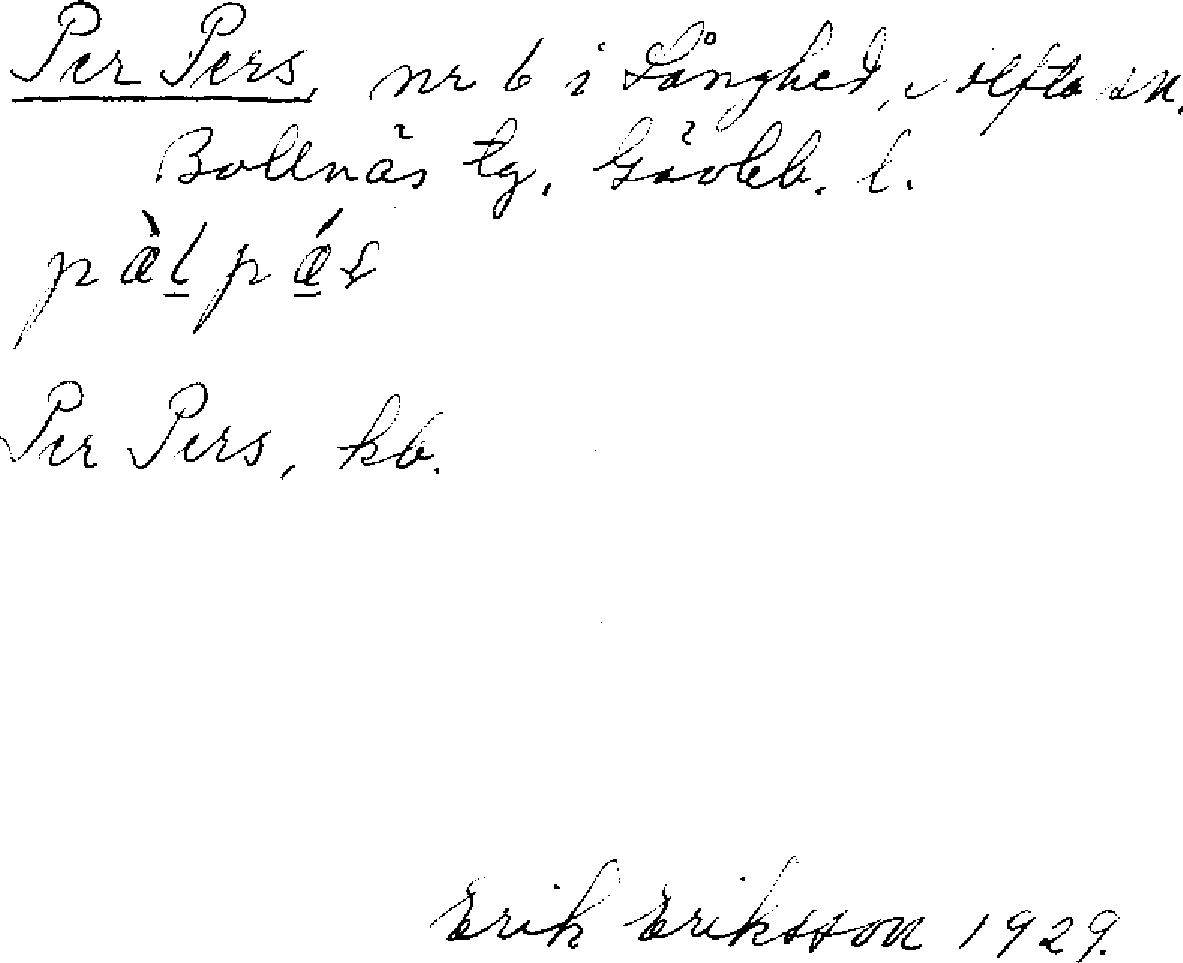 Per Pers, nr 6 i Långhed, Alfta sn.
Bollnäs tg. Gävleb. l.
Per Pers, kb.
Erik Eriksson 1929.